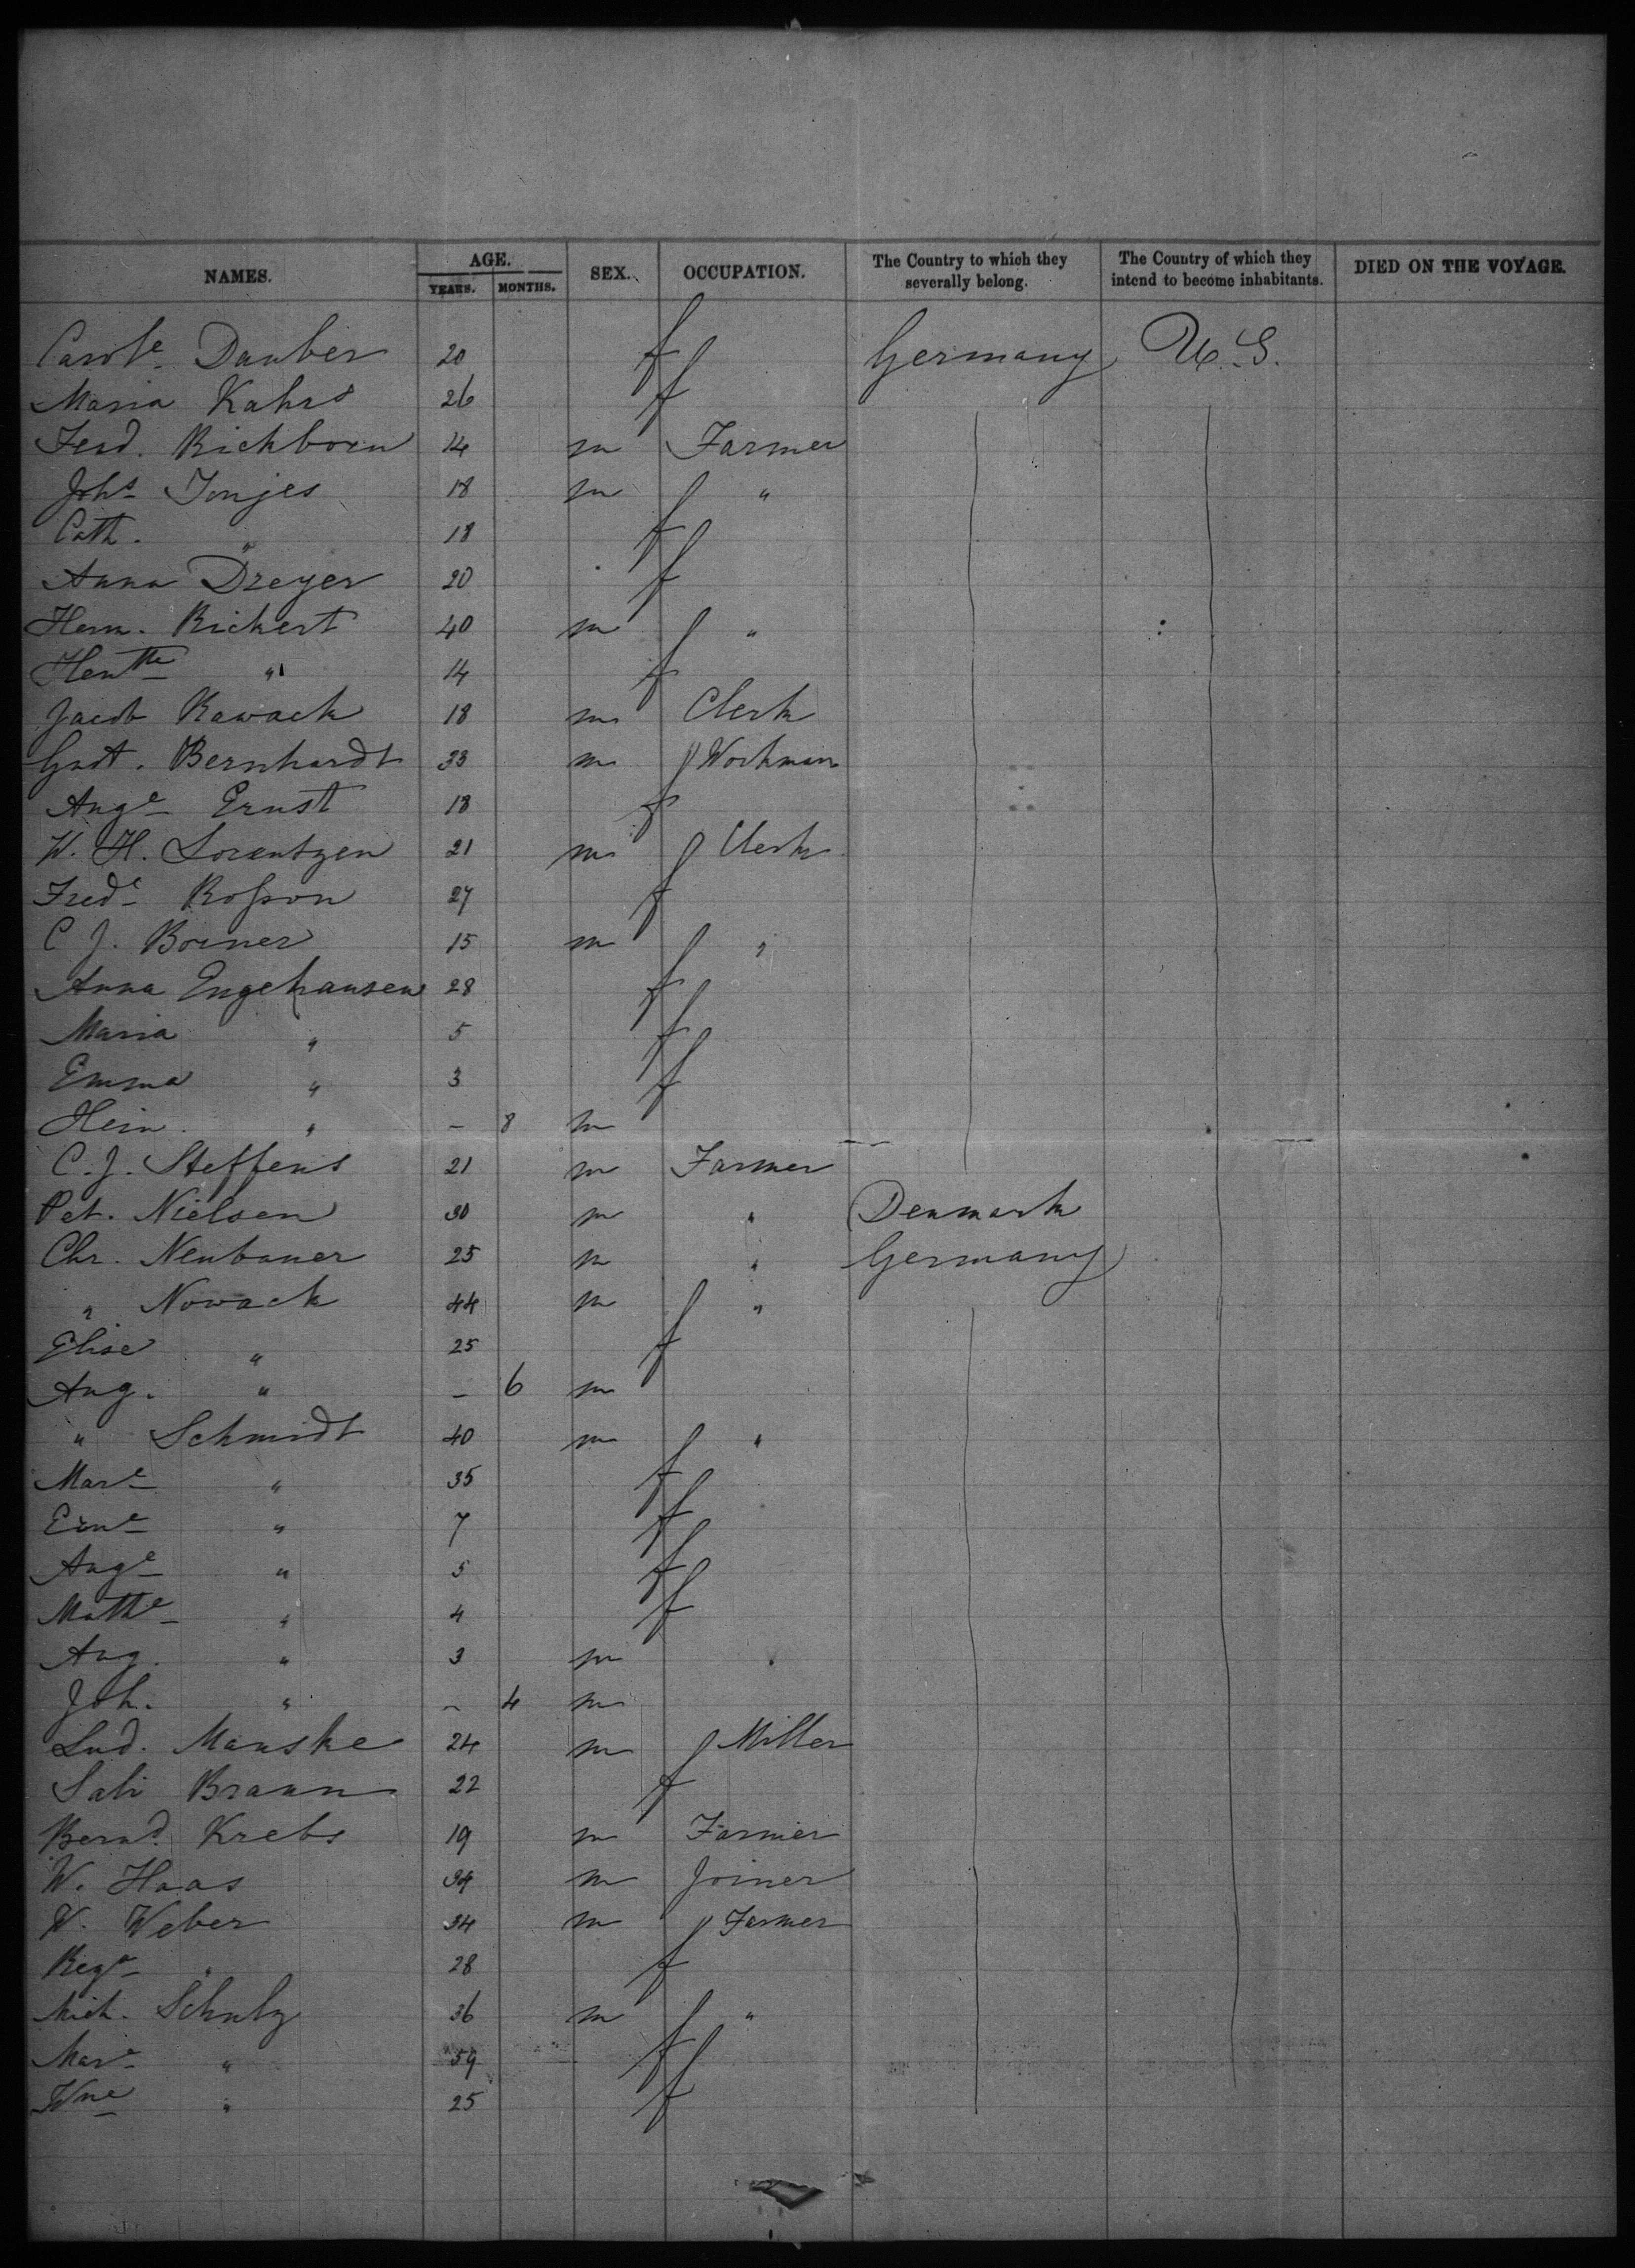 NAMES. AGE. YEARS. MONTHS. SEX. OCCUPATION. The Country to which they severally belong. The Country of which they intend to become inhabitants. DIED ON THE VOYAGE.
Carole Dauber 20 f Germany U.S.
Maria Kahrs 26 f
Ferd. Richborn 14 m Farmer
Johs Tonjes 18 m "
Cath. " 18 f
Anna Dreyer 20 f
Herm. Rickert 40 m "
Hentte " 14 f
Jacob Kawack 18 m Clerk
Gust. Bernhardt 33 m Workman
Auge Ernst 18 f
W. H. Lorentzen 21 m Clerk
Frede Rosson 27 f
C J. Borner 15 m "
Anna Engehausen 28 f
Maria " 5 f
Emma " 3 f
Hein. " – 8 m
C. J. Steffens 21 m Farmer
Pet. Nielsen 30 m " Denmark
Chr. Neubauer 25 m " Germany
" Nowack 44 m "
Elise " 25 f
Aug. " – 6 m
" Schmidt 40 m "
Mare " 35 f
Erne " 7 f
Auge " 5 f
Mathe " 4 f
Aug. " 3 m
Joh. " – 4 m
Lud. Manske 24 m Miller
Sali Braun 22 f
Bernd. Krebs 19 m Farmer
W. Haas m Joiner
W. Weber 34 m Farmer
Rege " 28 f
Mich. Schulz 36 m "
Mare " 59 f
Wne " 25 f